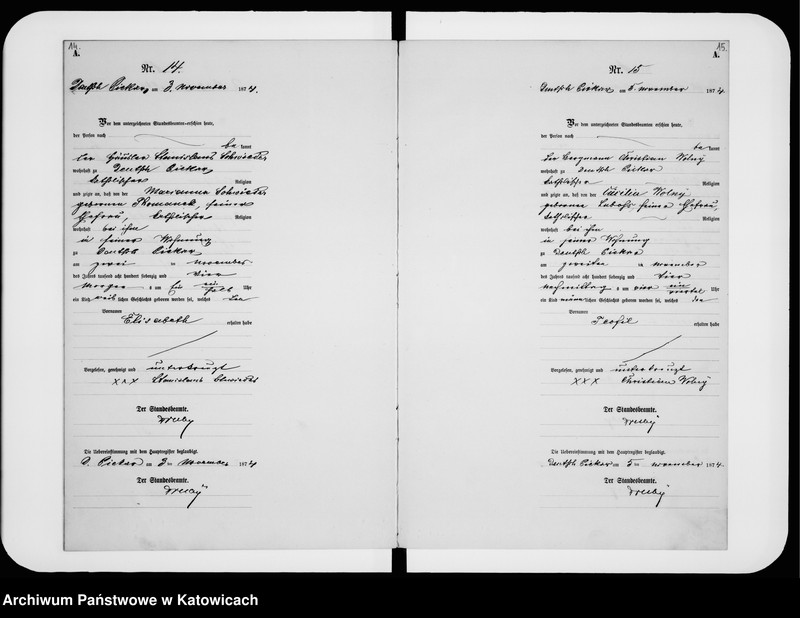 14.
A.
Nr. 14.
Deutsch Piekar, am 3. November 1874.
Vor dem unterzeichneten Standesbeamten erschien heute,
der Person nach
be kannt
der Häusler Stanislaus
wohnhaft zu Deutsch Piekar,
katholischer Religion
und zeigte an, daß von der Marianna
geborenen seiner
Ehefrau, katholischer Religion
wohnhaft bei ihm
in seiner Wohnung
zu Deutsch Piekar
am zwei ten November
des Jahres tausend acht hundert siebenzig und vier
Morgen s um Uhr
ein Kind weib lichen Geschlechts geboren worden sei, welches den
Vornamen
Elisabeth erhalten habe
Vorgelesen, genehmigt und unterkreuzt
xxx Stanislaus
Der Standesbeamte.
Die Uebereinstimmung mit dem Hauptregister beglaubigt.
D. Piekar am 3 ten November 1874
Der Standesbeamte.
15.
A.
Nr. 15
Deutsch Piekar am 5. November 1874
Vor dem unterzeichneten Standesbeamten erschien heute,
der Person nach
be kannt
der Bergmann Christian Wolny
wohnhaft zu Deutsch Piekar
katholischer Religion
und zeigte an, daß von der Cäcilia Wolny
geborenen seiner Ehefrau,
katholischer Religion
wohnhaft bei ihm
in seiner Wohnung
zu Deutsch Piekar
am zweiten November
des Jahres tausend acht hundert siebenzig und vier
Nachmittag s um vier ein viertel Uhr
ein Kind männ lichen Geschlechts geboren worden sei, welches den
Vornamen
Teofil erhalten habe
Vorgelesen, genehmigt und unterkreuzt
XXX Christian Wolny
Der Standesbeamte.
Die Uebereinstimmung mit dem Hauptregister beglaubigt.
Deutsch Piekar am 5 ten November 1874.
Der Standesbeamte.
Archiwum Państwowe w Katowicach